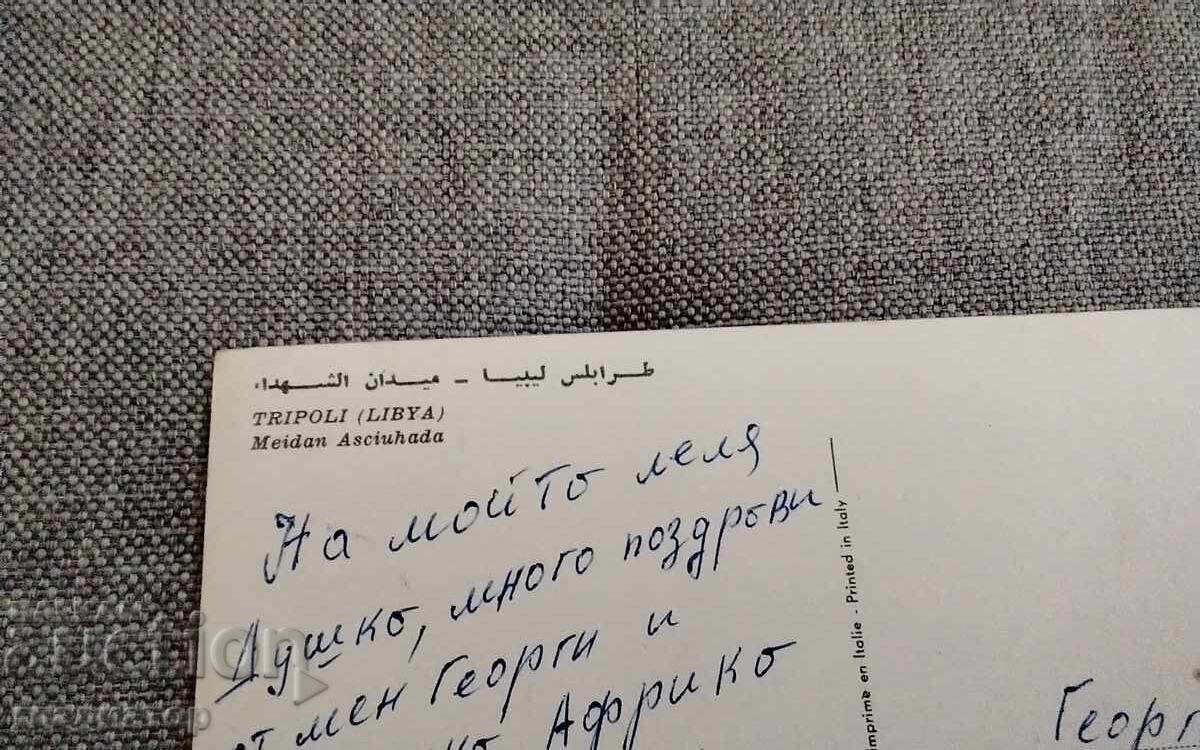 طرابلس ليبيا - ميدان الشهداء
TRIPOLI (LIBYA)
Meidan Asciuhada
На мойто леля
Душко, много поздрови
от мен Георги и
Африко
Imprime en Italie - Printed in Italy
Георг